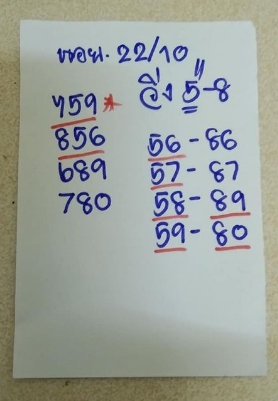 ฮอย. 22/10
วิ่ง 5"-8
759*
856
689
780
56 - 86
57 - 87
58 - 89
59 - 80